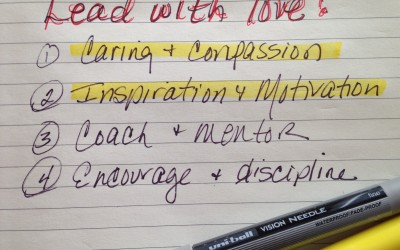 Lead with love!
① Caring + Compassion
② Inspiration + Motivation
③ Coach + mentor
④ Encourage + discipline
uni-ball VISION NEEDLE
WATERPROOF/FADE-PROOF